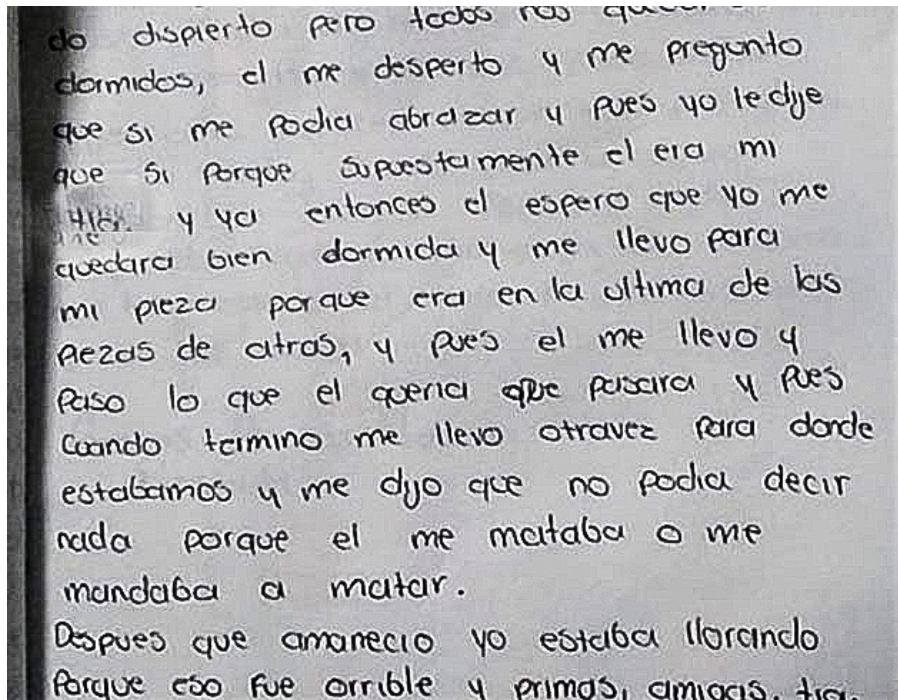 do dispierto pero todos nos
dormidos, el me desperto y me pregunto
que si me podia abrazar y pues yo le dije
que si porque supuestamente el era mi
y ya entonces el espero que yo me
quedara bien dormida y me llevo para
mi pieza porque era en la ultima de las
piezas de atras, y pues el me llevo y
paso lo que el queria que pasara y pues
cuando termino me llevo otravez para donde
estabamos y me dijo que no podia decir
nada porque el me mataba o me
mandaba a matar.
Despues que amanecio yo estaba llorando
porque eso fue orrible y primos, amigas,